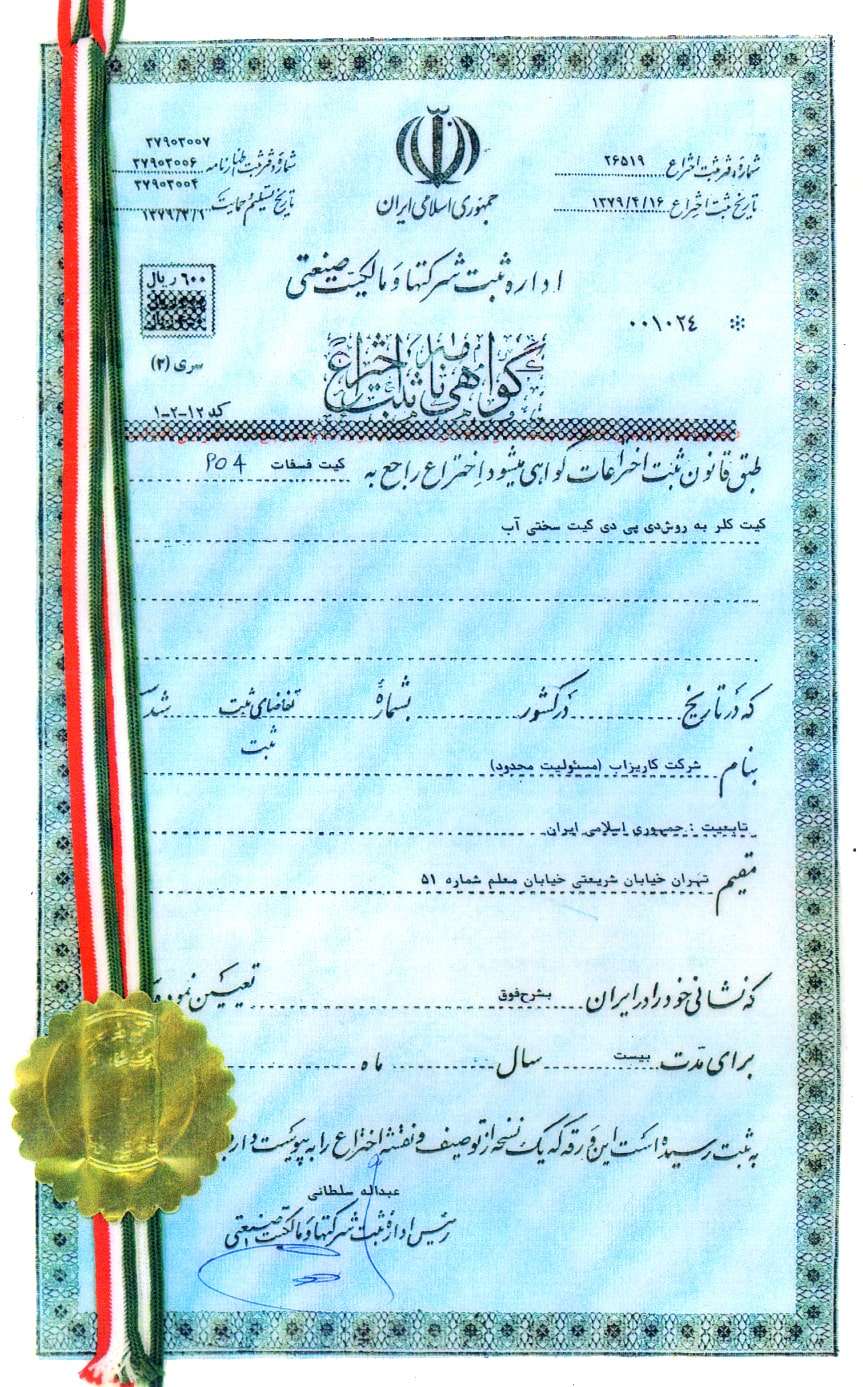 شماره دفتر ثبت اختراع ۲۶۵۱۹
تاریخ ثبت اختراع ۱۳۷۹/۴/۱۶
جمهوری اسلامی ایران
۳۷۹۰۳۰۰۷
شماره دفتر ثبت اظهارنامه ۳۷۹۰۳۰۰۶
۳۷۹۰۳۰۰۴
تاریخ تسلیم و حمایت ۱۳۷۹/۳/۱
اداره ثبت شرکتها و مالکیت صنعتی
۶۰۰ ریال
۰۰۱۰۲٤
سری (۳)
گواهی نامه ثبت اختراع
کد ۱۲-۲-۱
طبق قانون ثبت اختراعات گواهی میشود اختراع راجع به کیت فسفات PO4
کیت کلر به روش دی پی دی کیت سختی آب
که در تاریخ در کشور بشمارهٔ تقاضای ثبت شده
ثبت
بنام شرکت کاریزاب (مسئولیت محدود)
تابعیت : جمهوری اسلامی ایران
مقیم تهران خیابان شریعتی خیابان معلم شماره ۵۱
که نشانی خود را در ایران بشرح فوق تعیین نموده
برای مدت بیست سال ماه
به ثبت رسیده است این ورقه که یک نسخه از توصیف و نقشه اختراع را به پیوست دارد
عبداله سلطانی
رئیس ادارهٔ ثبت شرکتها و مالکیت صنعتی